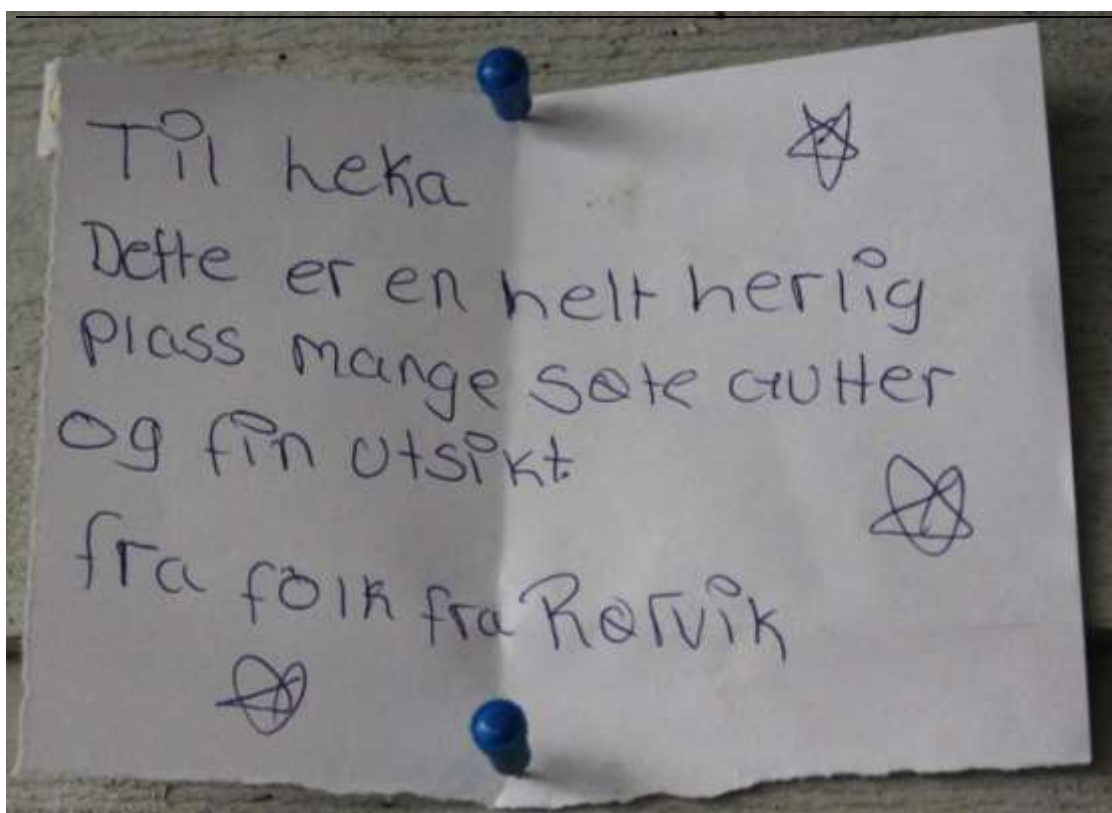 Til heka
Dette er en helt herlig
Plass mange søte gutter
og fin utsikt.
fra folk fra Rørvik